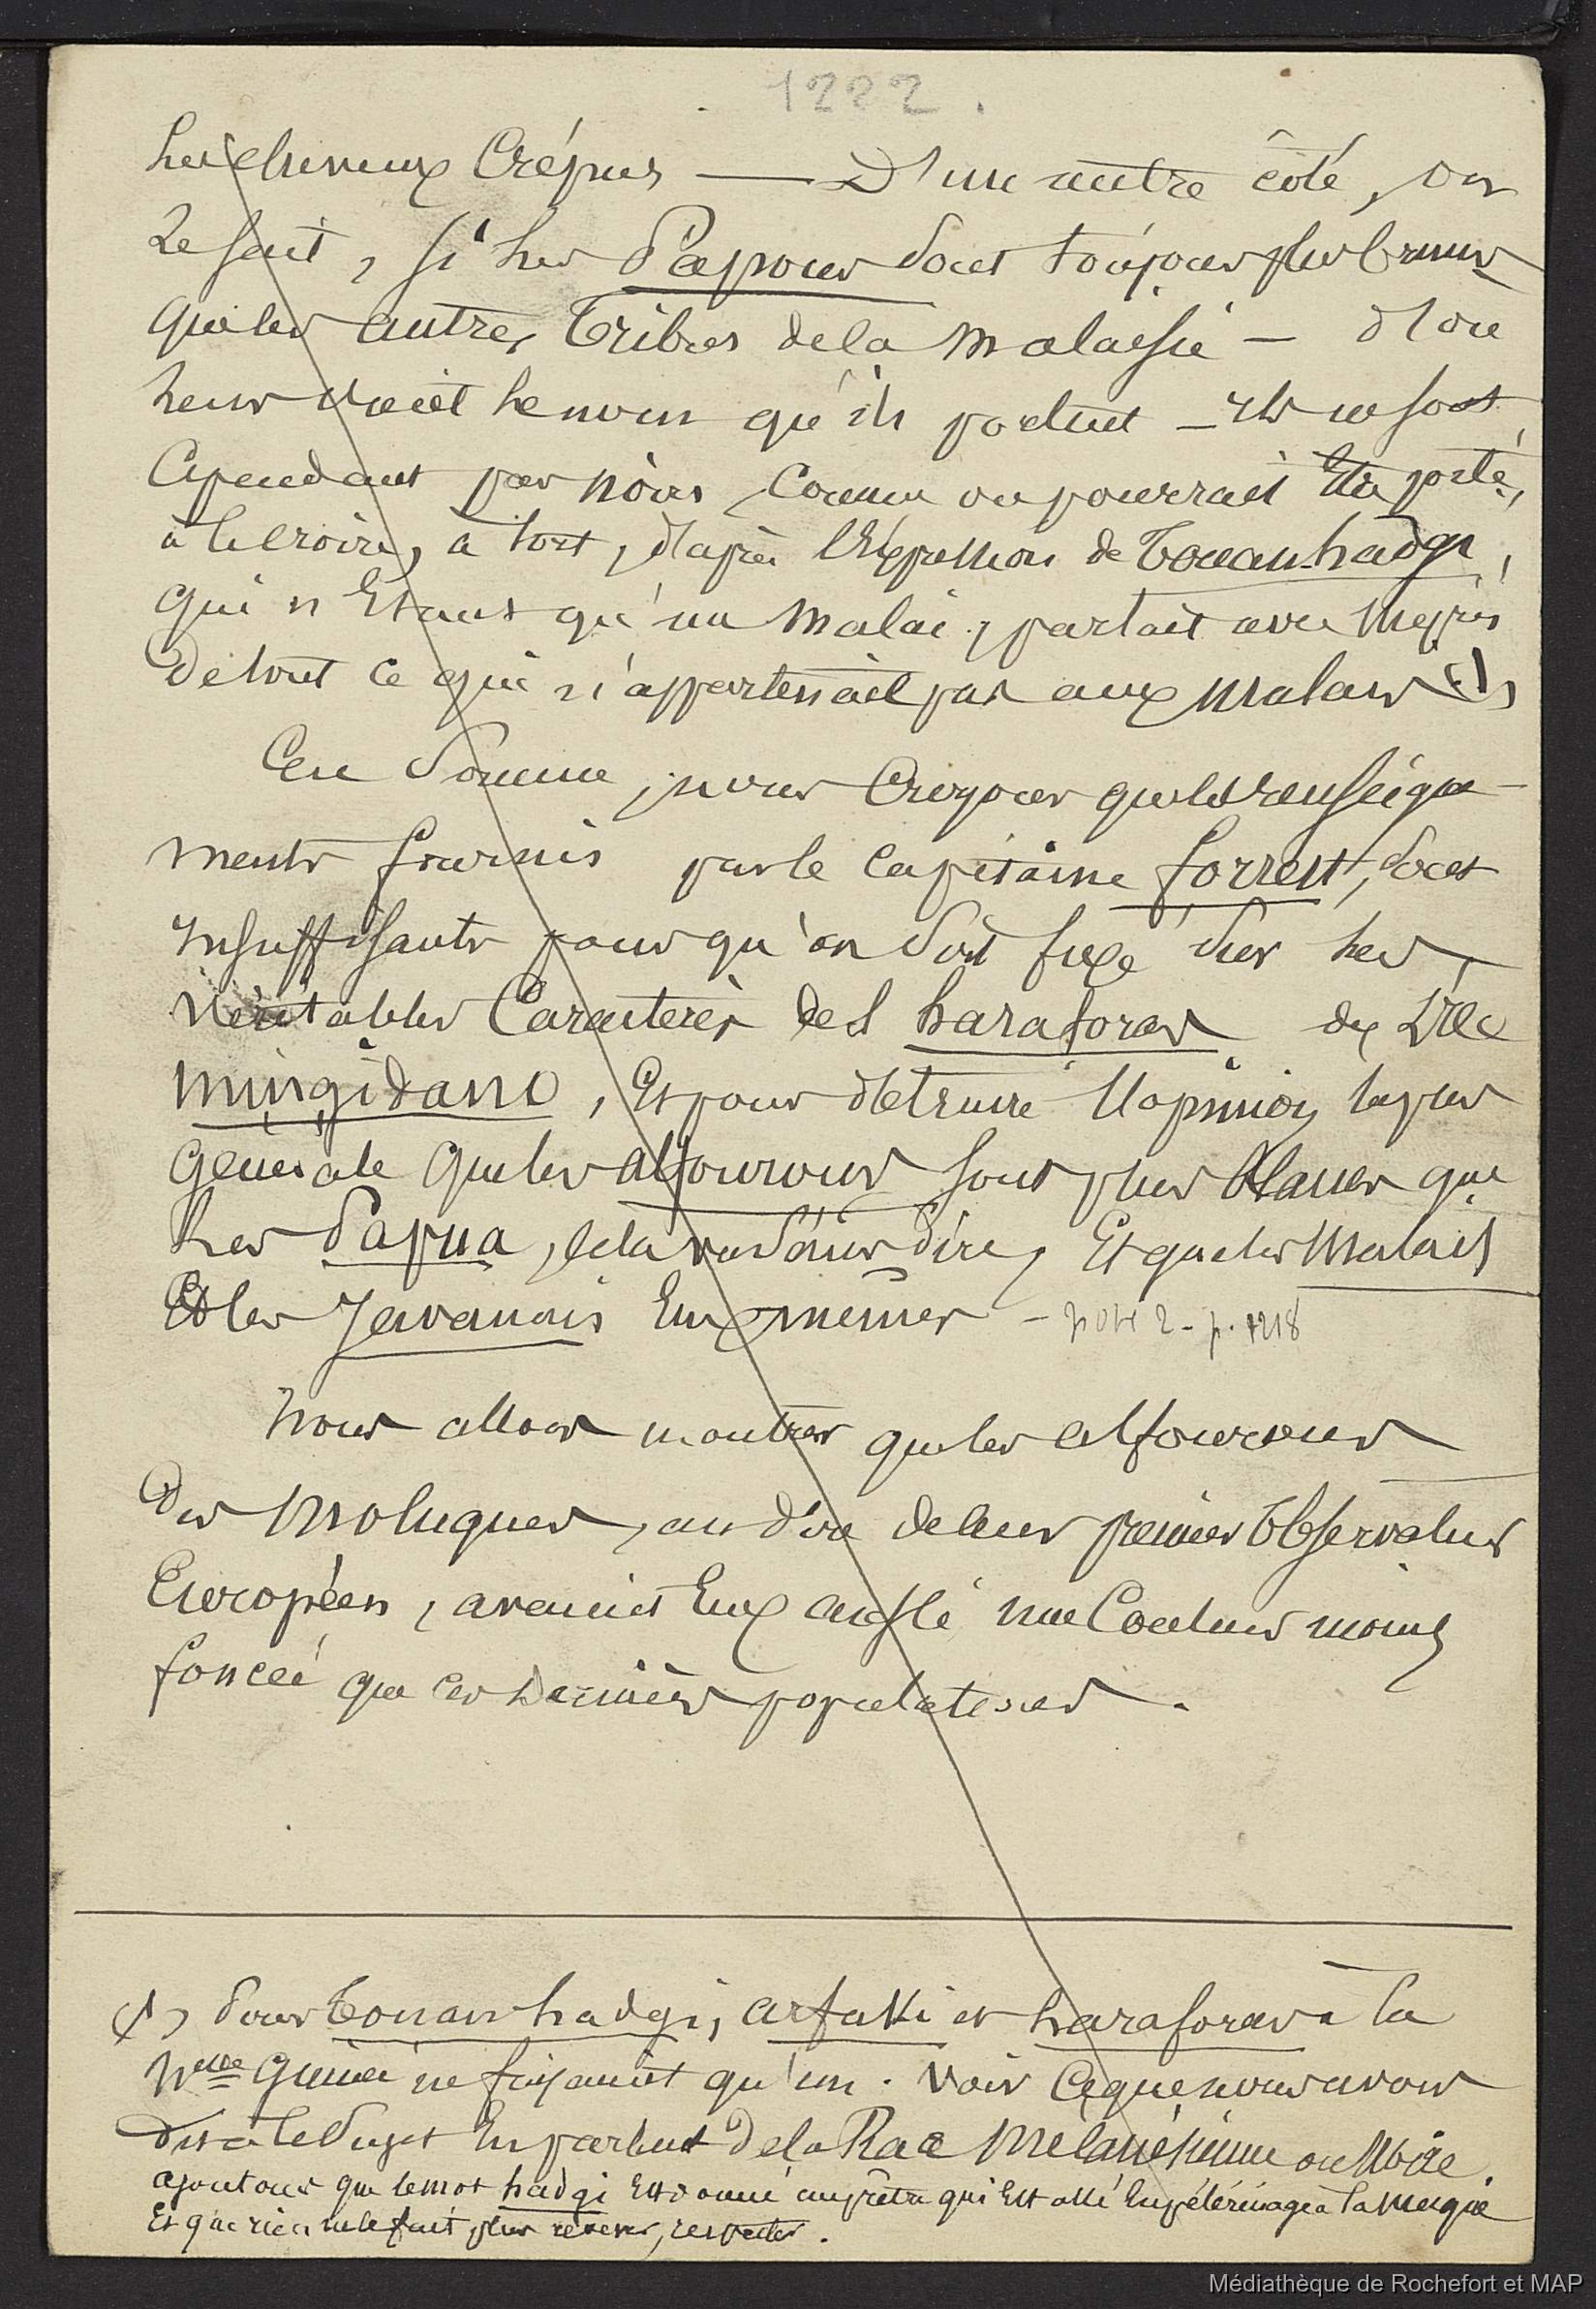 1222.
les cheveux Crépus — D'un autre côté, on
le sait, si les Papous sont toujours plus bruns
que les autres Tribus de la Malaisie — d'où
leur vient le nom qu'ils portent — ils ne sont
Cependant pas noirs, comme on pourrait être porté,
à le croire, à tort, d'après l'Expression de Touan-hadgi,
qui n'Etant qu'un Malai, parlait avec Mépris
de tout ce qui n'appartenait pas aux Malais (1)
En Somme, nous Croyons que les renseigne-
ments fournis par le Capitaine forrest, sont
insuffisants pour qu'on soit fixé sur les
véritables Caractères des haraforas de l'île
mingidano, Et pour détruire l'opinion la plus
générale que les alfourous sont plus blancs que
les Papua, cela va sans dire, Et que les Malais
Et les Javanais Eux memes - note 2 - p. 1218
Nous allons montrer que les alfourous
des Moluques, au dire de leurs premiers Observateurs
Européens, avaient Eux aussi une Couleur moins
foncée que ces dernières populations.
(1) Pour Touan hadgi, arfaki et haraforas à la
Nelle Guinée ne faisaient qu'un. Voir ce que nous avons
dit à ce Sujet En parlant de la Race Mélanésienne ou Noire.
ajoutons que le mot hadgi Est donné au prêtre qui Est allé En pélérinage à la Mecque
Et que rien ne le fait plus révérer, respecter.
Médiathèque de Rochefort et MAP